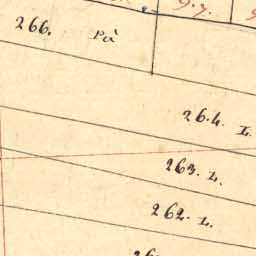 9.7.
266. Pà
264. L.
263. L.
262. L.